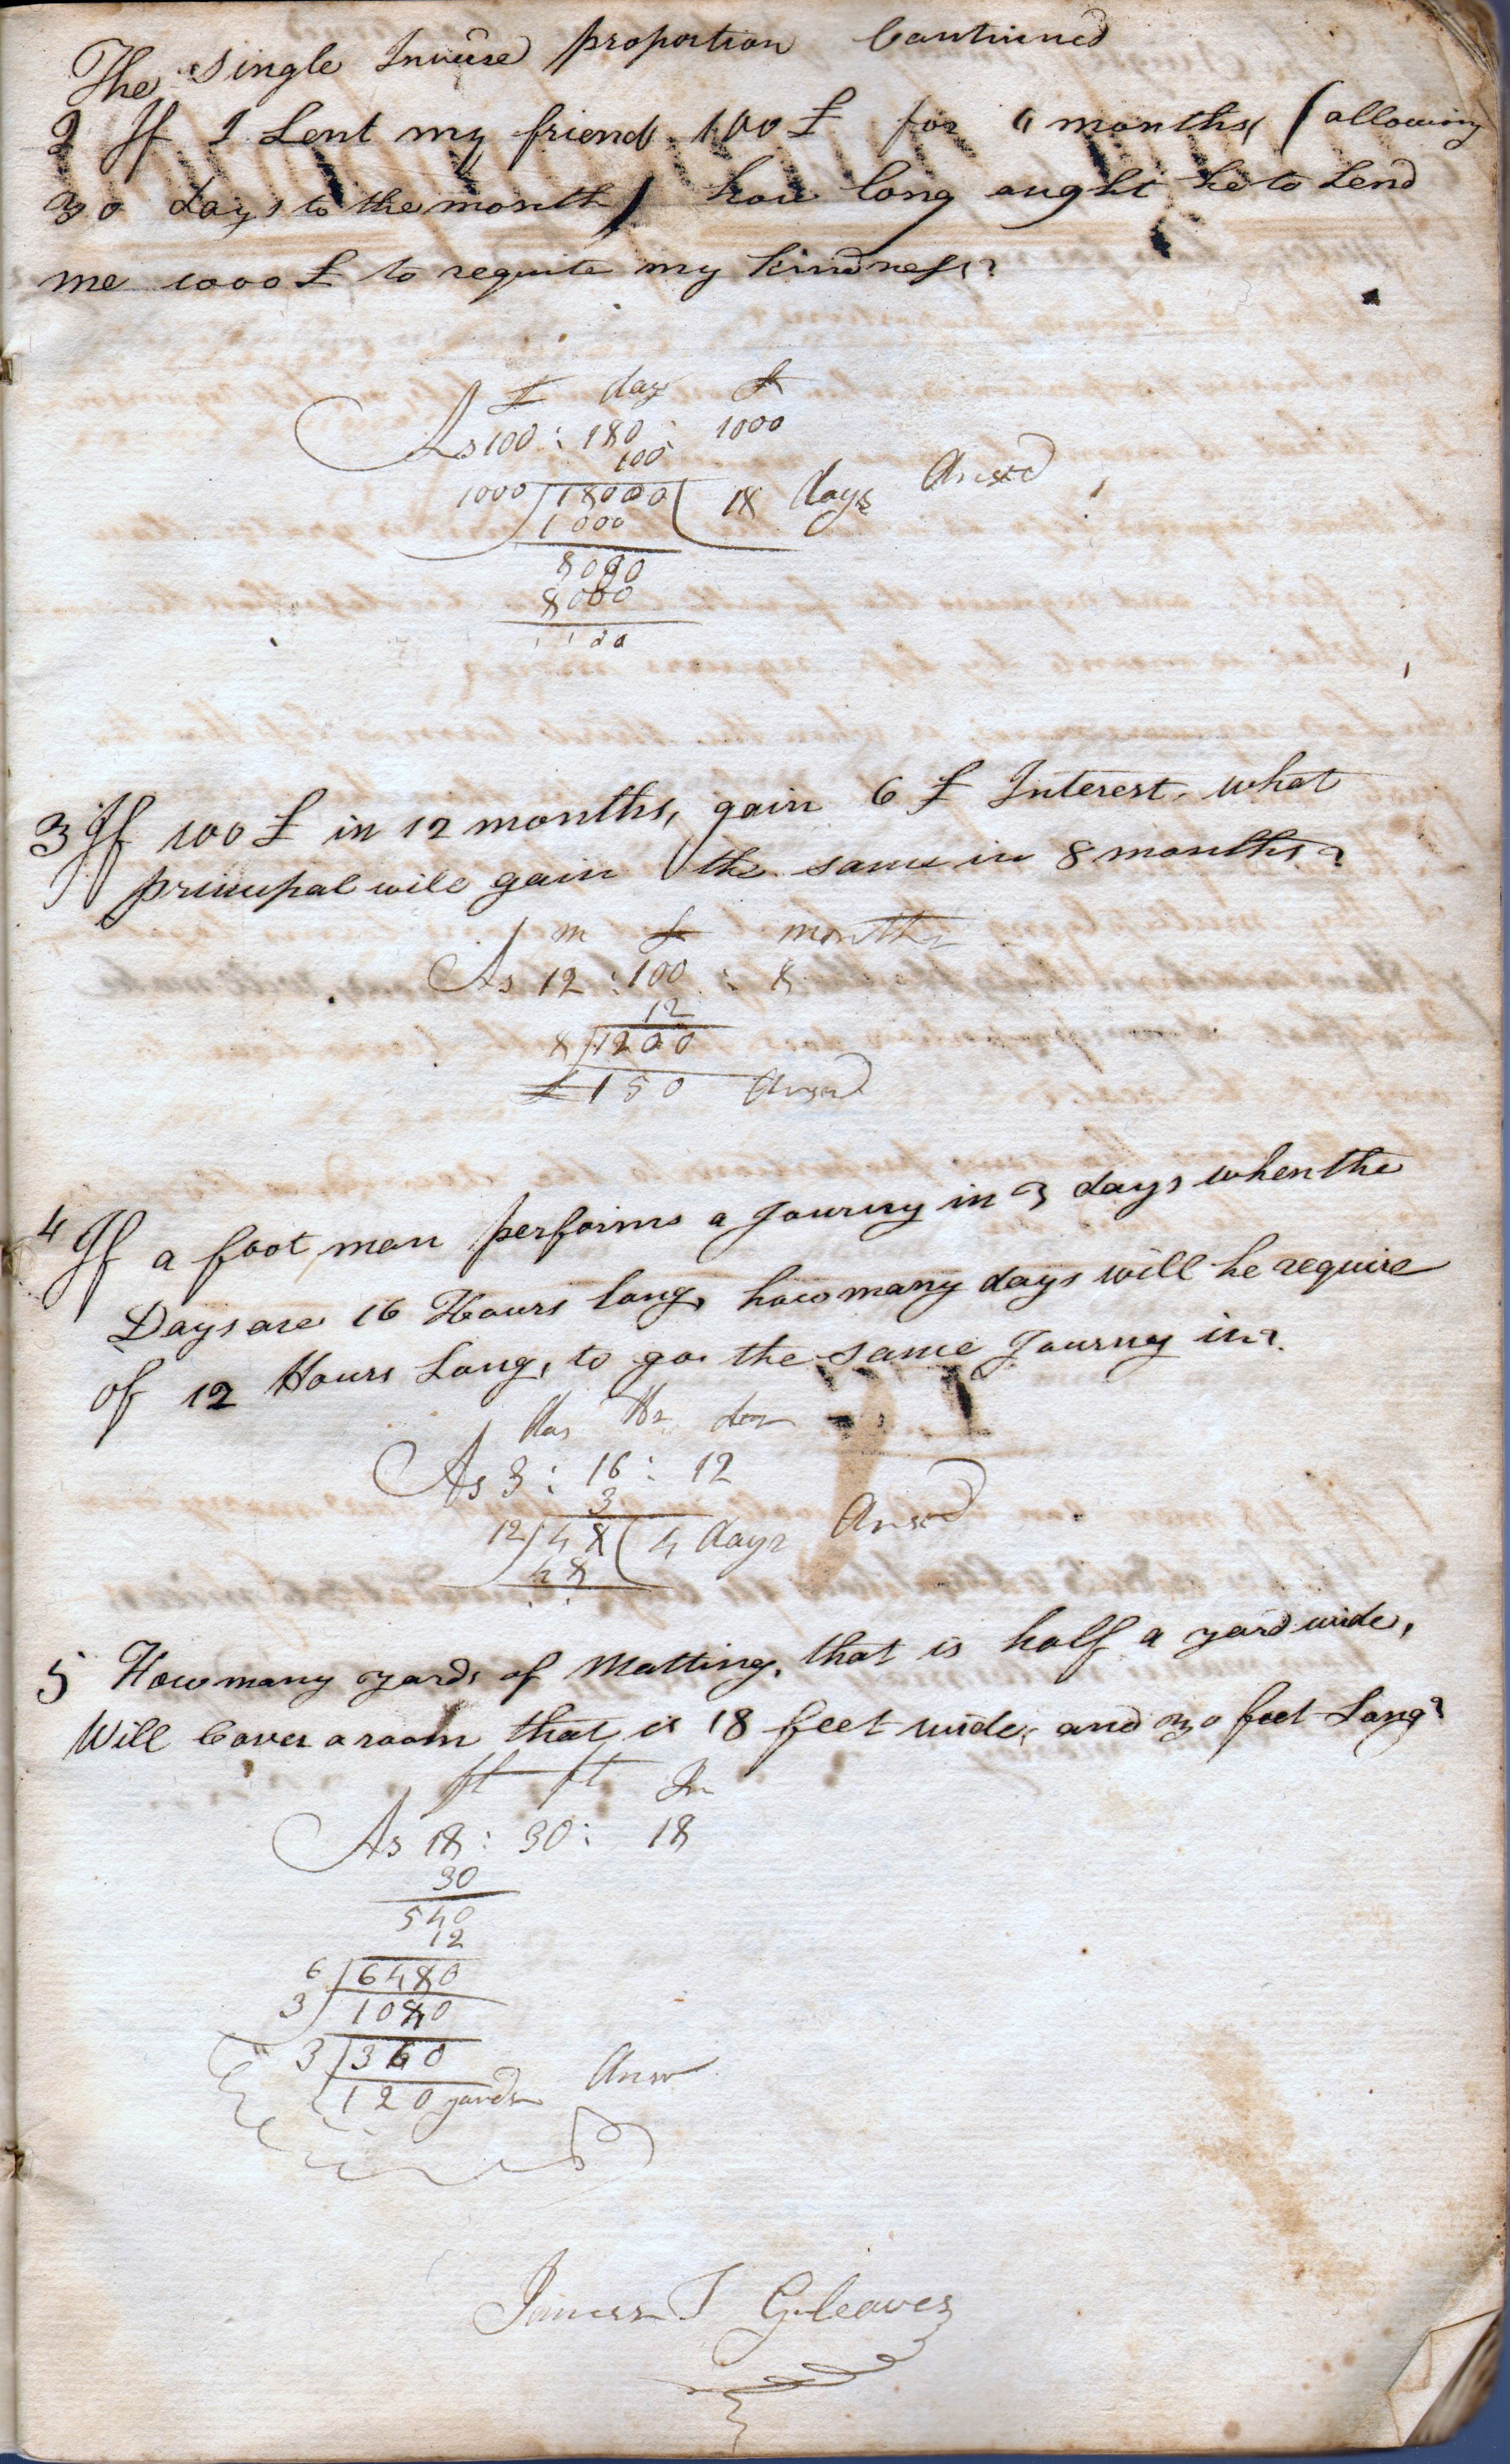 The Single Inverse proportion Continued
2 If I Lent my friend 100 £ for 6 months (allowing
30 days to the month) how long ought he to Lend
me 1000 £ to requite my kindness?
£ day £
As 100 : 180 : 1000
100
1000 ) 18000 ( 18 days Answd
1000
8000
8000
3 If 100 £ in 12 months, gain 6 £ Interest, what
principal will gain the same in 8 months?
m £ months
As 12 : 100 : 8
12
8 ) 1200
£ 150 Answd
4 If a foot man performs a Journy in 3 days when the
Days are 16 Hours long, how many days will he require
of 12 Hours Long, to go the same Journy in?
das Hr
As 3 : 16 : 12
3
12 ) 48 ( 4 days Answd
48
5 How many yards of Matting, that is half a yard wide,
Will Cover a room that is 18 feet wide, and 30 feet Long?
ft ft In
As 18 : 30 : 18
30
540
12
6 ) 6480
3 ) 1080
3 ) 360
120 yards Answ
James T Gleaves